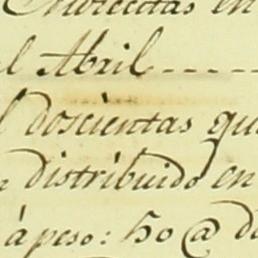 en
l Abril - - - -
l doscientas qu
n distribuido en
á peso: 50 @ d